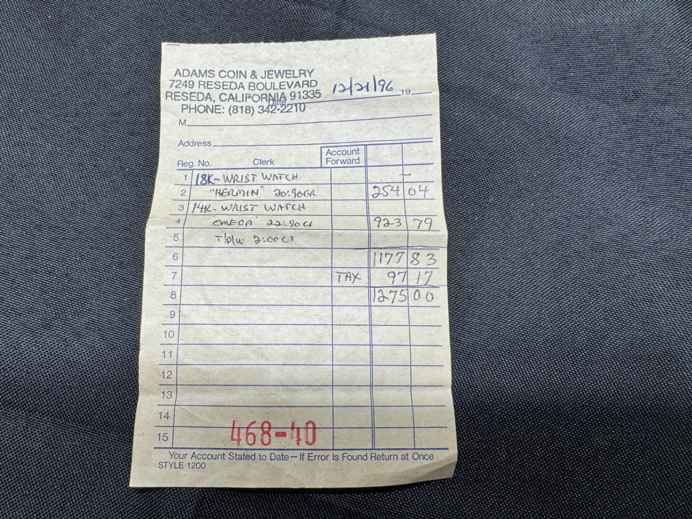 ADAMS COIN & JEWELRY
7249 RESEDA BOULEVARD
RESEDA, CALIFORNIA 91335
PHONE: (818) 342-2210
12/21/96 19
M
Address
Reg. No. Clerk Account Forward
1 18K-WRIST WATCH -
2 "HERMIN" 20.90GR 254 04
3 14K-WRIST WATCH
4 OMEGA 22.90 923 79
5 T/D/W 2.00CT
6 1177 83
7 TAX 97 17
8 1275 00
9
10
11
12
13
14
15
468-40
Your Account Stated to Date – If Error Is Found Return at Once
STYLE 1200